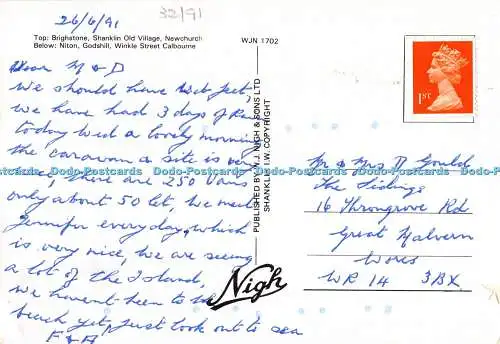 26/6/91
32/91
Top: Brighstone, Shanklin Old Village, Newchurch
Below: Niton, Godshill, Winkle Street Calbourne
WJN 1702
Dear M & D
We should have wet feet,
we have had 3 days of Rain
today Wed a lovely morning
the caravan & site is very
there are 250 Vans
only about 50 let, we meet
Jennifer every day, which
is very nice, we are seeing
a lot of the Island,
we havent been to the
beach yet, just look out to sea
F & A
PUBLISHED BY W.J. NIGH & SONS LTD
SHANKLIN I.W. COPYRIGHT
Nigh
1ST
Mr & Mrs D Gould
The Tidings
16 Throngrove Rd
Great Malvern
Worcs
WR 14 3BX
Dodo-Postcards Dodo-Postcards Dodo-Postcards Dodo-Postcards